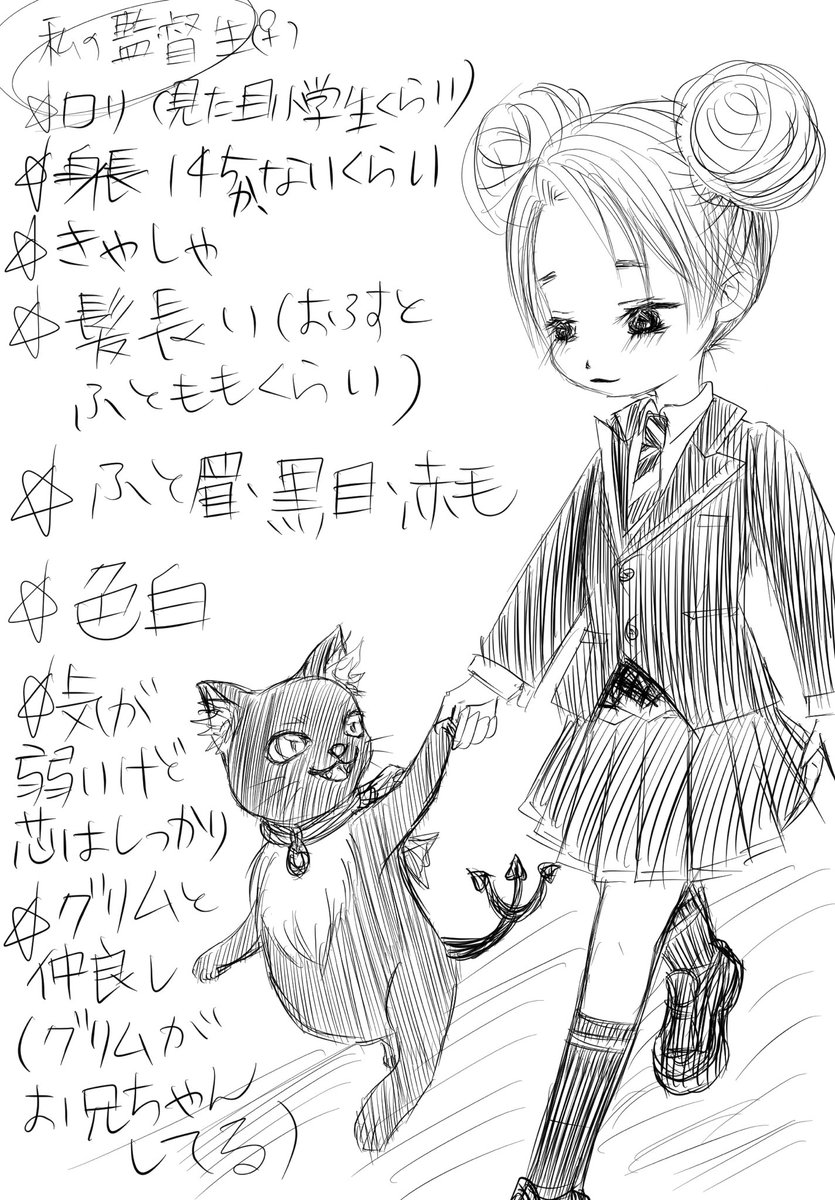 私の監督生(♀)
☆ロリ(見た目小学生くらい)
☆身長145かないくらい
☆きゃしゃ
☆髪長い(おろすと
ふとももくらい)
☆ふと眉、黒目、赤毛
☆色白
☆気が
弱いけど
芯はしっかり
☆グリムと
仲良し
(グリムが
お兄ちゃん
してる)